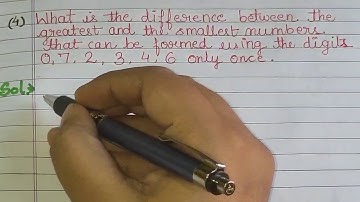 (4) What is the difference between the
greatest and the smallest numbers.
that can be formed using the digits
0, 7, 2, 3, 4, 6 only once.
Sol: